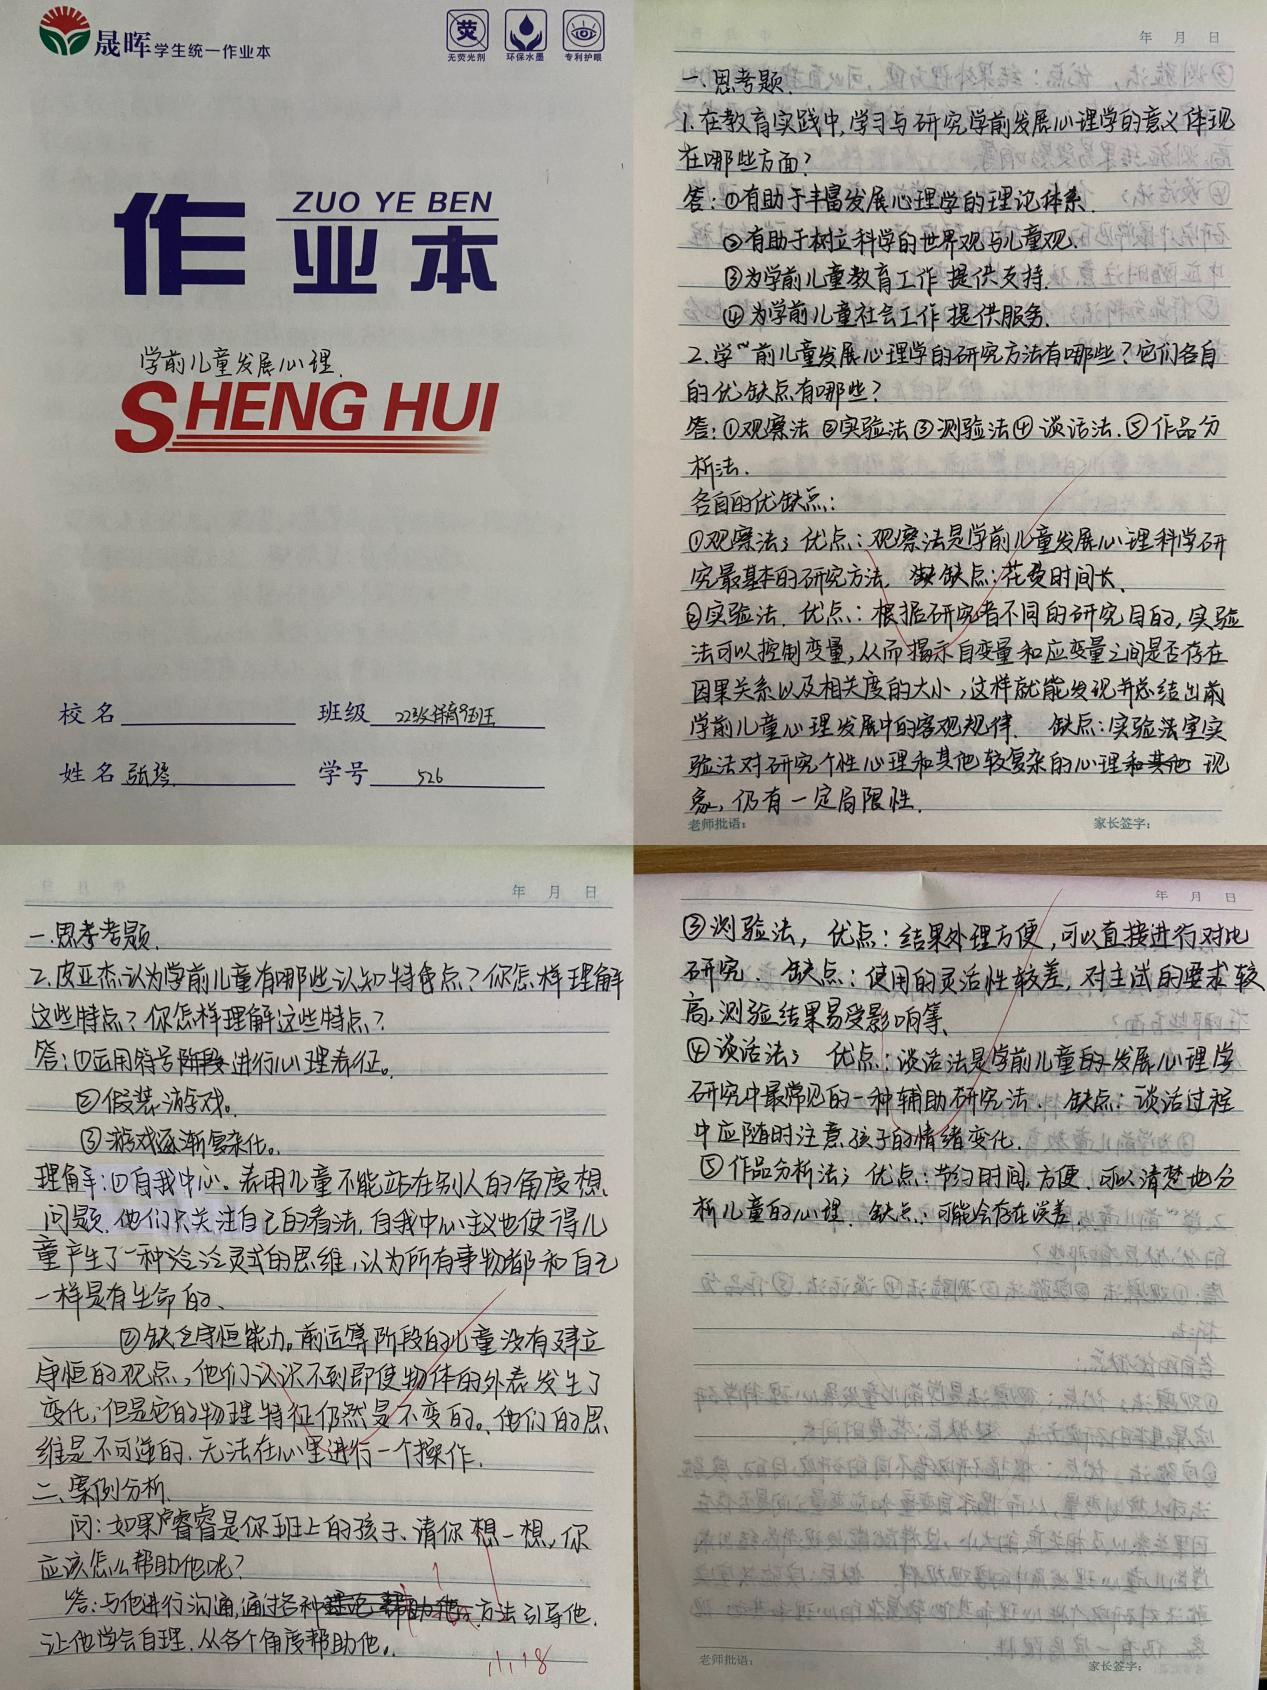 晟晖学生统一作业本
荧
无荧光剂 环保水墨 专利护眼
作业本
ZUO YE BEN
学前儿童发展心理.
SHENG HUI
校名 班级
姓名 学号 526
年 月 日
一.思考题.
1.在教育实践中,学习与研究学前发展心理学的意义体现
在哪些方面?
答:①有助于丰富发展心理学的理论体系.
②有助于树立科学的世界观与儿童观.
③为学前儿童教育工作提供支持.
④为学前儿童社会工作提供服务.
2.学~前儿童发展心理学的研究方法有哪些?它们各自
的优缺点有哪些?
答:①观察法 ②实验法③测验法④谈话法.⑤作品分
析法.
各自的优缺点:
①观察法; 优点:观察法是学前儿童发展心理科学研
究最基本的研究方法. 缺点:花费时间长.
②实验法. 优点:根据研究者不同的研究目的,实验
法可以控制变量,从而揭示自变量和应变量之间是否存在
因果关系以及相关度的大小,这样就能发现并总结出前
学前儿童心理发展中的客观规律. 缺点:实验法室实
验法对研究个性心理和其他较复杂的心理和其他现
象,仍有一定局限性.
老师批语: 家长签字:
年 月 日
一.思考考题.
2.皮亚杰认为学前儿童有哪些认知特色点?你怎样理解
这些特点?你怎样理解这些特点?
答:①运用符号阶段进行心理表征。
②假装游戏。
③游戏逐渐复杂化。
理解:①自我中心。表明儿童不能站在别人的角度想
问题.他们只关注自己的看法,自我中心主义也使得儿
童产生了一种泠泠灵式的思维,认为所有事物都和自己
一样是有生命的、
②缺乏守恒能力。前运算阶段的儿童没有建立
守恒的观点,他们认识不到即使物体的外表发生了
变化;但是它的物理特征仍然是不变的。他们的思
维是不可逆的.无法在心里进行一个操作.
二、案例分析.
问:如果卢睿睿是你班上的孩子、请你想一想,你
应该怎么帮助他呢?
答:与他进行沟通,通过各种方法引导他.
让他学会自理.从各个角度帮助他。
11.18
年 月 日
③测验法, 优点:结果处理方便,可以直接进行对比
研究. 缺点:使用的灵活性较差,对主试的要求较
高,测验结果易受影响等、
④谈话法; 优点:谈话法是学前儿童的发展心理学
研究中最常见的一种辅助研究法. 缺点:谈话过程
中应随时注意孩子的情绪变化.
⑤作品分析法; 优点:节约时间,方便.可以清楚地分
析儿童的心理. 缺点:可能会存在误差.
老师批语: 家长签字: